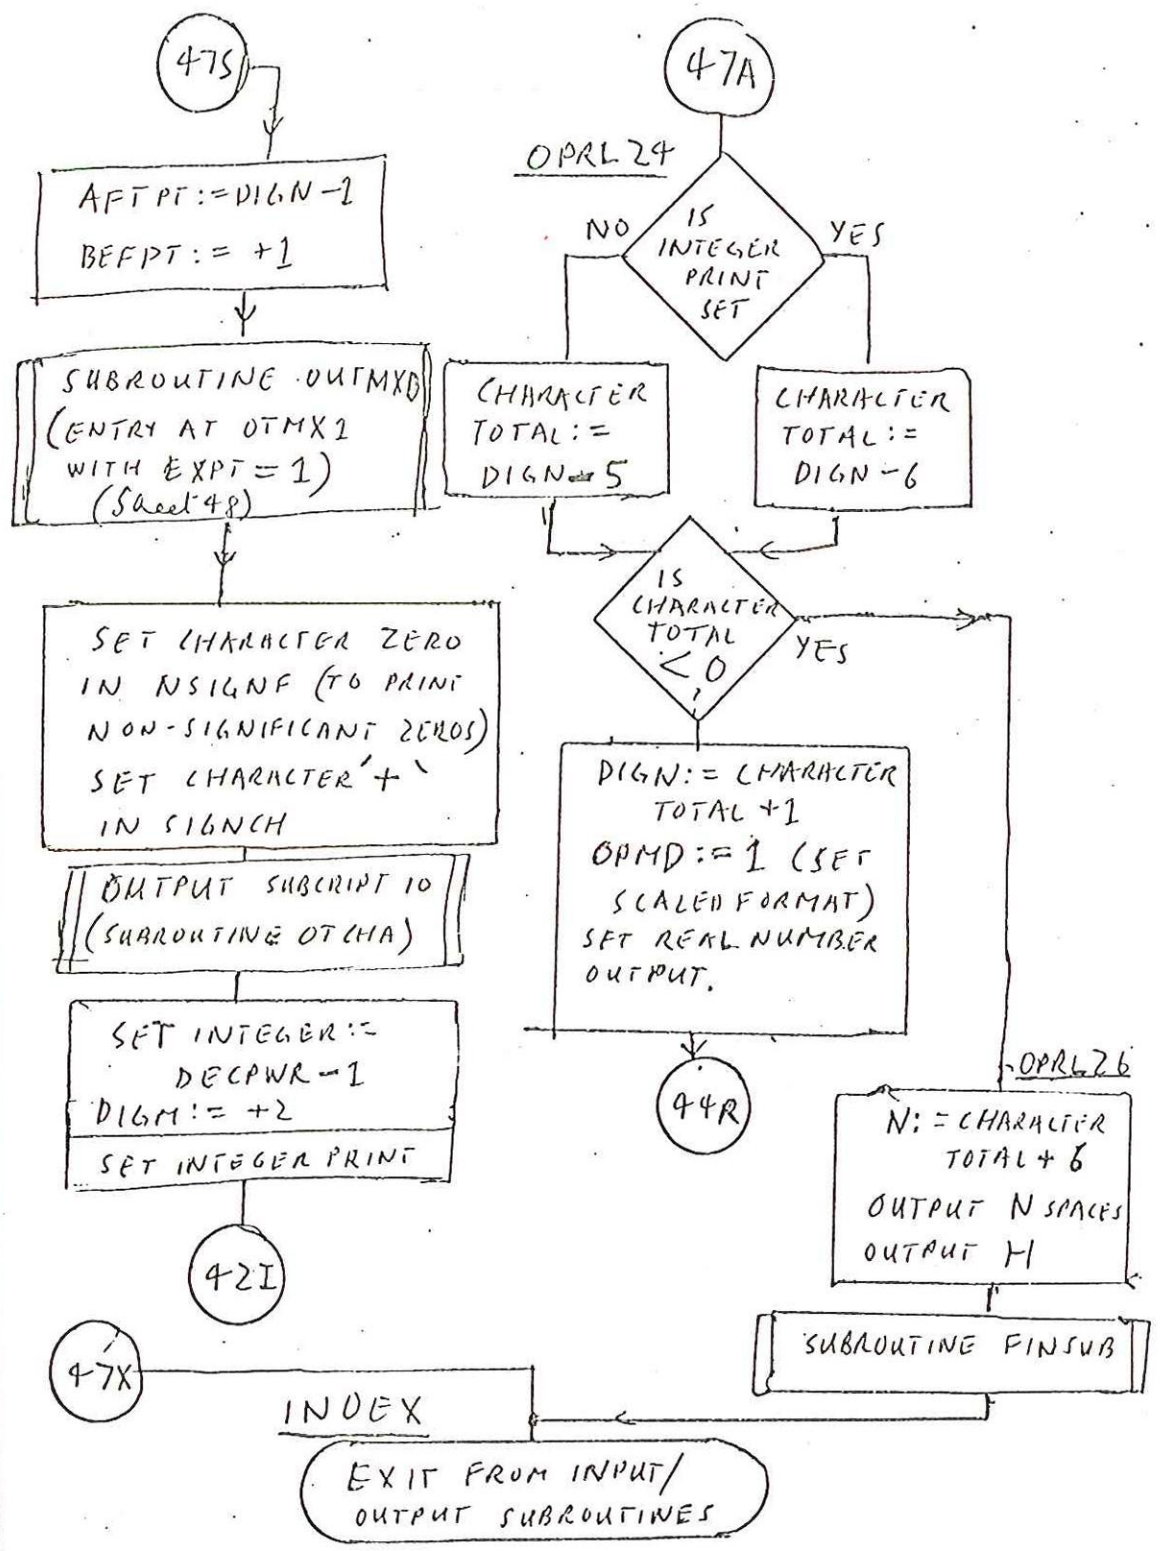 47S
AFTPT:=DIGN-1
BEFPT:= +1
SUBROUTINE OUTMXD
(ENTRY AT OTMX1
WITH EXPT = 1)
(Sheet 48)
SET CHARACTER ZERO
IN NSIGNF (TO PRINT
NON-SIGNIFICANT ZEROS)
SET CHARACTER '+'
IN SIGNCH
OUTPUT SUBCRIPT 10
(SUBROUTINE OTCHA)
SET INTEGER:=
DECPWR-1
DIGM:= +2
SET INTEGER PRINT
42I
47A
OPRL24
IS
INTEGER
PRINT
SET
NO
YES
CHARACTER
TOTAL:=
DIGN-5
CHARACTER
TOTAL:=
DIGN-6
IS
CHARACTER
TOTAL
<0
YES
DIGN:= CHARACTER
TOTAL+1
OPMD:=1 (SET
SCALED FORMAT)
SET REAL NUMBER
OUTPUT.
44R
OPRL26
N:=CHARACTER
TOTAL+6
OUTPUT N SPACES
OUTPUT H
SUBROUTINE FINSUB
47X
INDEX
EXIT FROM INPUT/
OUTPUT SUBROUTINES